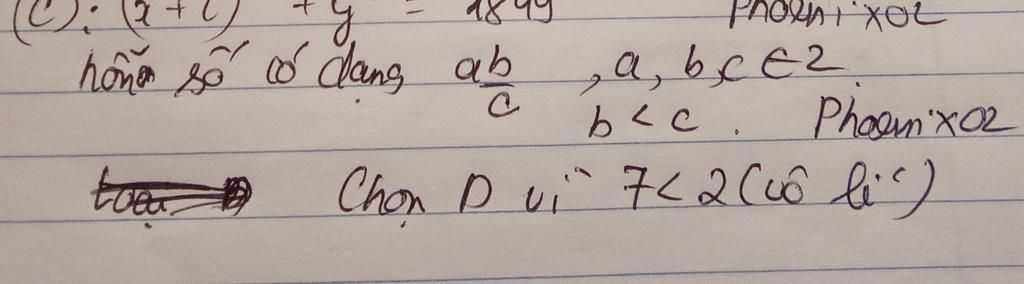 (C): (x + 1) + y = 1849 Phoenixo2
hỗn số có dạng a b/c , a, b, c ∈ Z
b < c . Phoenixo2
Chọn D vì 7 < 2 (vô lí)